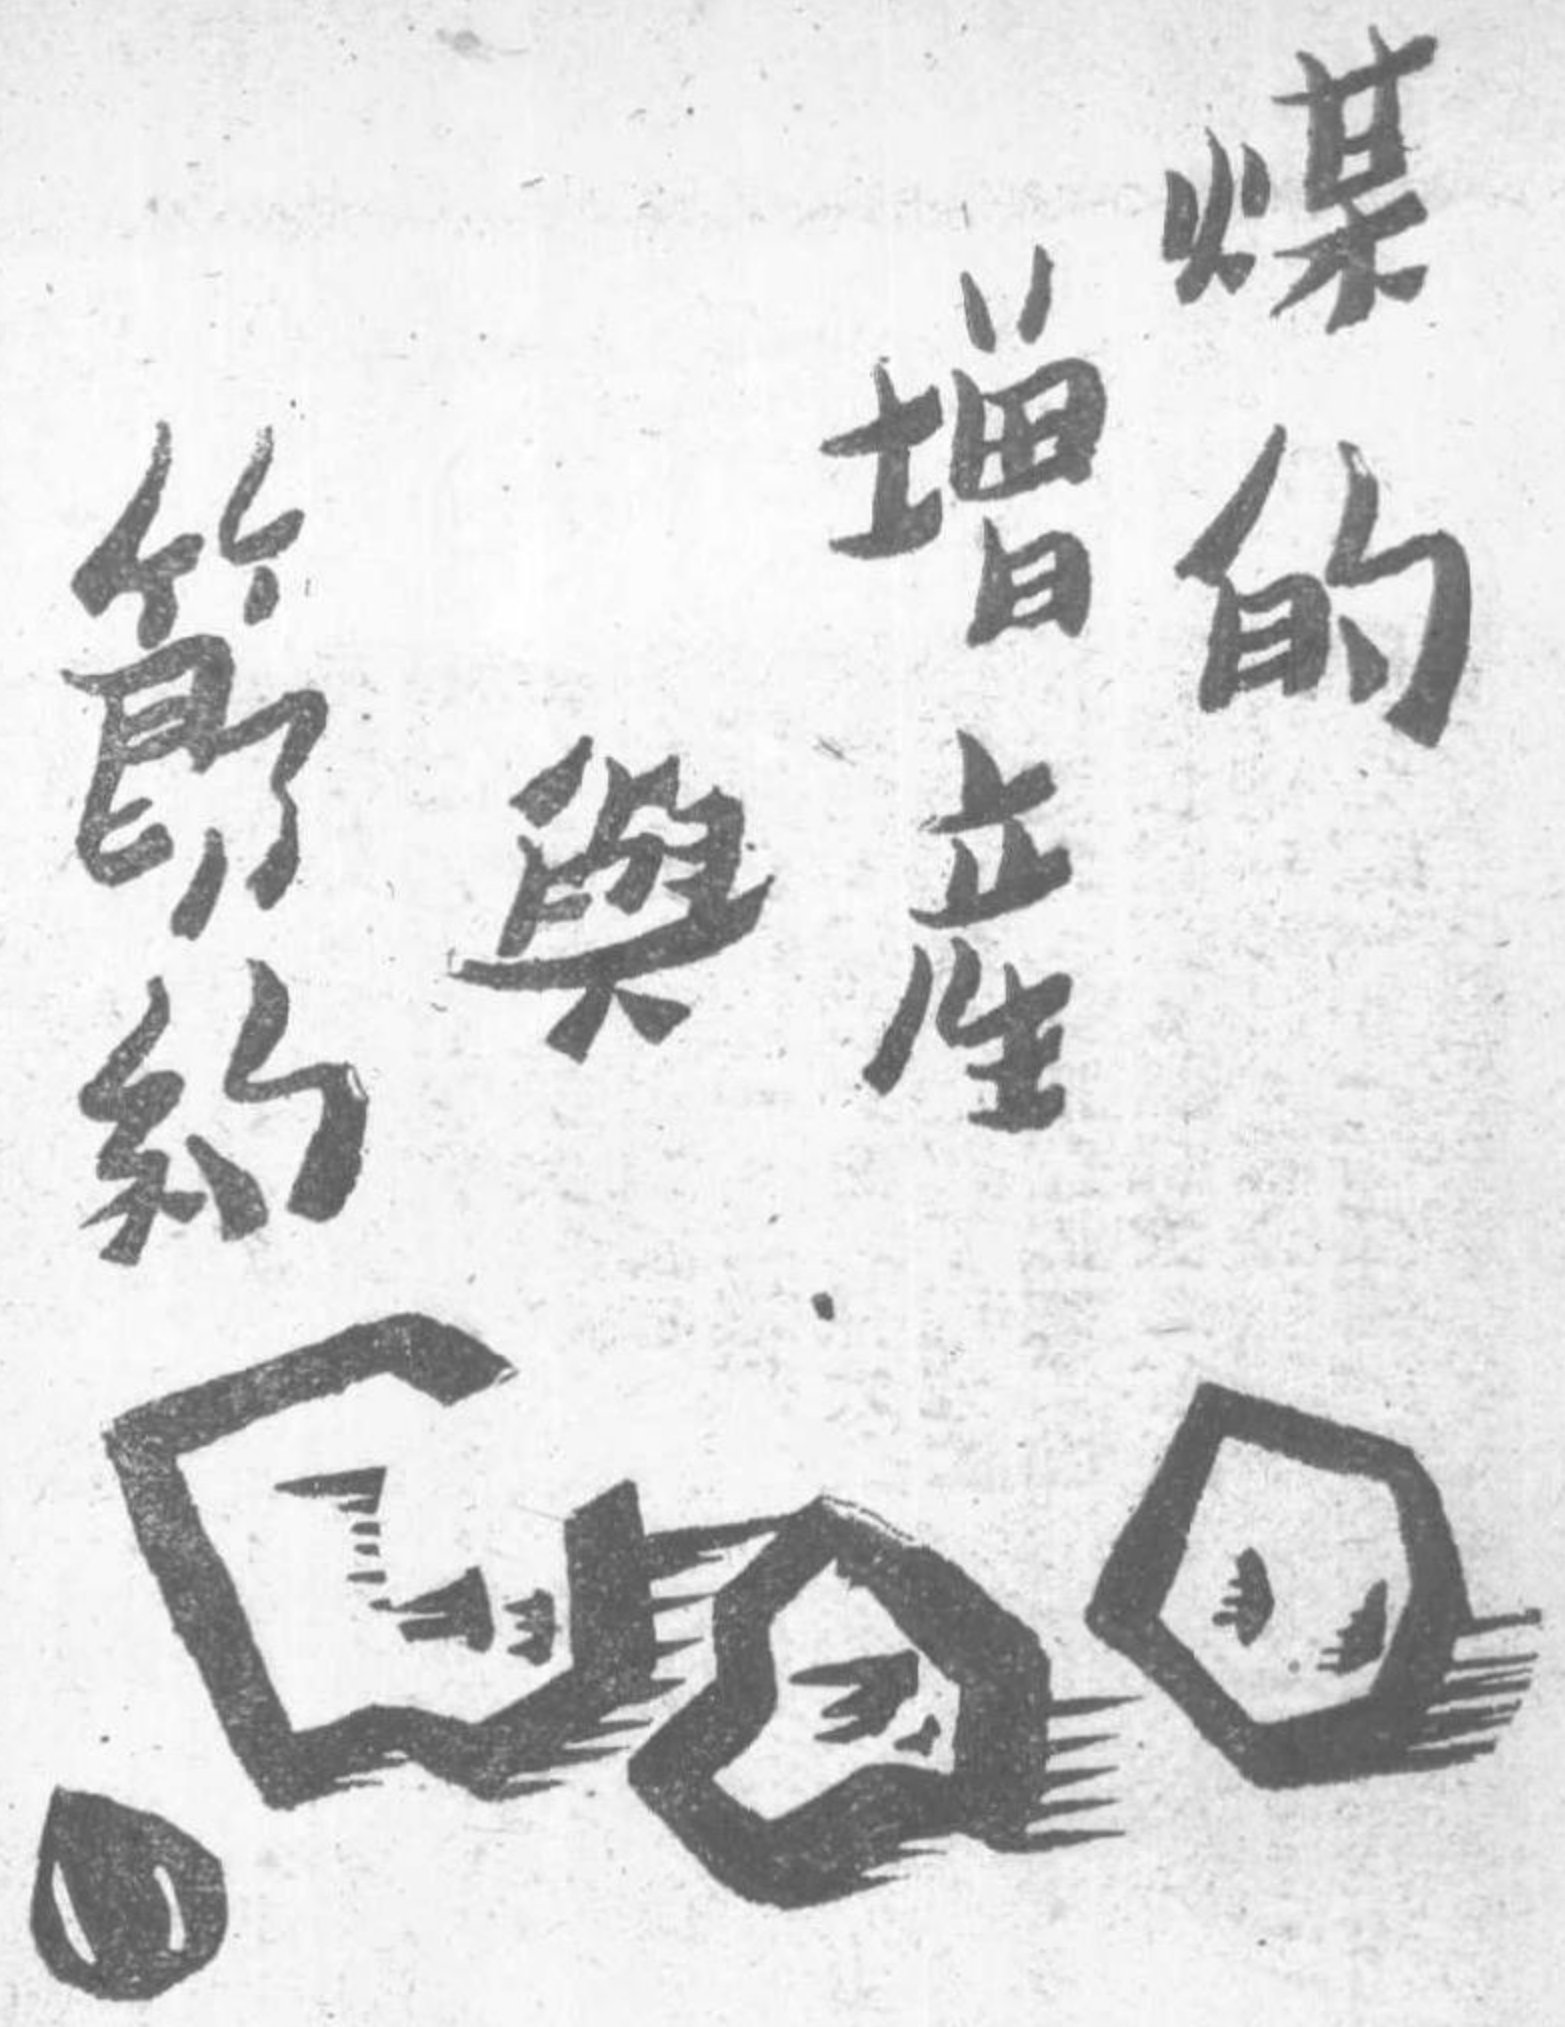 煤的
增産
與
節約